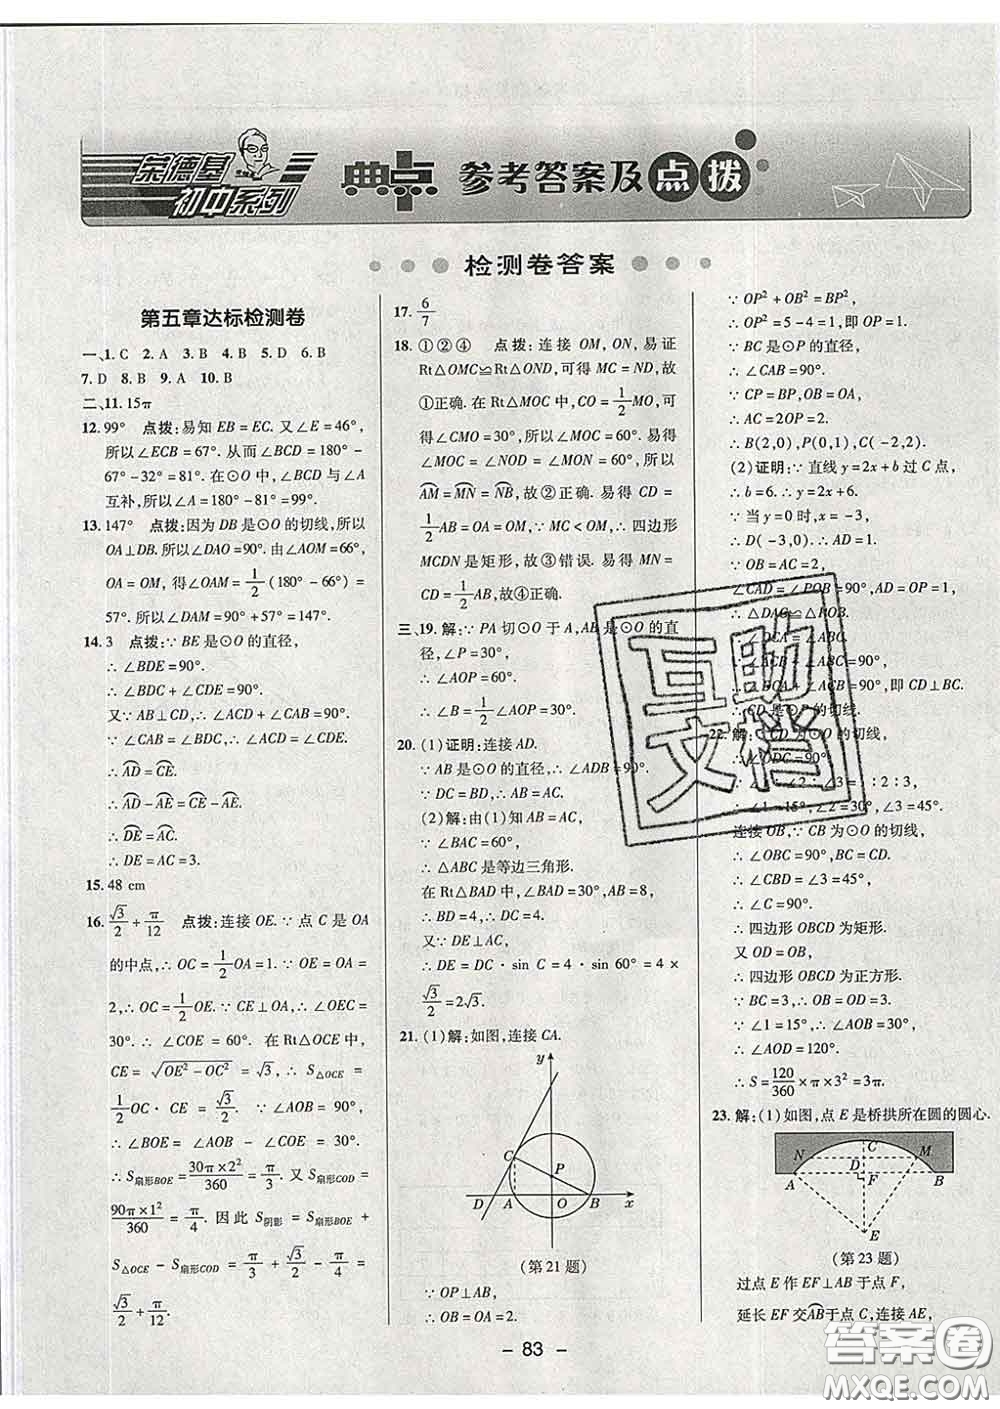 荣德基
初中系列
典中点 参考答案及点拨
检测卷答案
第五章达标检测卷
一、1. C 2. A 3. B 4. B 5. D 6. B
7. D 8. B 9. A 10. B
二、11. 15π
12. 99° 点拨:易知 EB = EC. 又∠E = 46°,
所以∠ECB = 67°. 从而∠BCD = 180° -
67° - 32° = 81°. 在⊙O 中,∠BCD 与∠A
互补,所以∠A = 180° - 81° = 99°.
13. 147° 点拨:因为 DB 是⊙O 的切线,所以
OA⊥DB. 所以∠DAO = 90°. 由∠AOM = 66°,
OA = OM, 得∠OAM = 1/2(180° - 66°) =
57°. 所以∠DAM = 90° + 57° = 147°.
14. 3 点拨:∵ BE 是⊙O 的直径,
∴ ∠BDE = 90°.
∴ ∠BDC + ∠CDE = 90°.
又∵ AB⊥CD,∴ ∠ACD + ∠CAB = 90°.
∵ ∠CAB = ∠BDC,∴ ∠ACD = ∠CDE.
∴ ⌒AD = ⌒CE.
∴ ⌒AD - ⌒AE = ⌒CE - ⌒AE.
∴ ⌒DE = ⌒AC.
∴ DE = AC = 3.
15. 48 cm
16. √3/2 + π/12 点拨:连接 OE. ∵ 点 C 是 OA
的中点,∴ OC = 1/2 OA = 1. ∵ OE = OA =
2,∴ OC = 1/2 OE. ∵ CE⊥OA,∴ ∠OEC =
30°. ∴ ∠COE = 60°. 在 Rt△OCE 中,
CE = √(OE² - OC²) = √3, ∴ S△OCE =
1/2 OC · CE = √3/2. ∵ ∠AOB = 90°,
∴ ∠BOE = ∠AOB - ∠COE = 30°.
∴ S扇形BOE = 30π×2²/360 = π/3. 又 S扇形COD =
90π×1²/360 = π/4. 因此 S阴影 = S扇形BOE +
S△OCE - S扇形COD = π/3 + √3/2 - π/4 =
√3/2 + π/12.
17. 6/7
18. ①②④ 点拨:连接 OM, ON, 易证
Rt△OMC≌Rt△OND, 可得 MC = ND, 故
①正确. 在 Rt△MOC 中,CO = 1/2 MO, 可
得∠CMO = 30°, 所以∠MOC = 60°. 易得
∠MOC = ∠NOD = ∠MON = 60°, 所以
⌒AM = ⌒MN = ⌒NB, 故②正确. 易得 CD =
1/2 AB = OA = OM, ∵ MC < OM, ∴ 四边形
MCDN 是矩形, 故③错误. 易得 MN =
CD = 1/2 AB, 故④正确.
三、19. 解:∵ PA 切⊙O 于 A, AB 是⊙O 的直
径, ∠P = 30°,
∴ ∠AOP = 60°.
∴ ∠B = 1/2∠AOP = 30°.
20. (1)证明:连接 AD.
∵ AB 是⊙O 的直径,∴ ∠ADB = 90°.
∵ DC = BD,∴ AB = AC.
(2)解:由(1)知 AB = AC,
∵ ∠BAC = 60°,
∴ △ABC 是等边三角形.
在 Rt△BAD 中,∠BAD = 30°, AB = 8,
∴ BD = 4,∴ DC = 4.
又∵ DE⊥AC,
∴ DE = DC · sin C = 4 · sin 60° = 4 ×
√3/2 = 2√3.
21. (1)解:如图,连接 CA.
y
C
P
D A O B x
(第 21 题)
∵ OP⊥AB,
∴ OB = OA = 2.
∵ OP² + OB² = BP²,
∴ OP² = 5 - 4 = 1, 即 OP = 1.
∵ BC 是⊙P 的直径,
∴ ∠CAB = 90°.
∵ CP = BP, OB = OA,
∴ AC = 2OP = 2.
∴ B(2,0), P(0,1), C(-2,2).
(2)证明:∵ 直线 y = 2x + b 过 C 点,
∴ b = 6. ∴ y = 2x + 6.
∵ 当 y = 0 时, x = -3,
∴ D(-3,0). ∴ AD = 1.
∵ OB = AC = 2,
∠CAD = ∠POB = 90°, AD = OP = 1,
∴ △DAC≌△POB.
∴ ∠DCA = ∠ABC.
∴ ∠DCA + ∠ACB = 90°, 即 CD⊥BC.
∴ CD 是⊙P 的切线.
22. 解:∵ CD 为⊙O 的切线,
∴ ∠ODC = 90°.
∵ ∠1:∠2:∠3 = 1:2:3,
∴ ∠1 = 15°, ∠2 = 30°, ∠3 = 45°.
连接 OB, ∵ CB 为⊙O 的切线,
∴ ∠OBC = 90°, BC = CD.
∴ ∠CBD = ∠3 = 45°.
∴ ∠C = 90°.
∴ 四边形 OBCD 为矩形.
又 OD = OB,
∴ 四边形 OBCD 为正方形.
∵ BC = 3,∴ OB = OD = 3.
∵ ∠1 = 15°,∴ ∠AOB = 30°.
∴ ∠AOD = 120°.
∴ S = 120/360 × π × 3² = 3π.
23. 解:(1)如图,点 E 是桥拱所在圆的圆心.
C
N D M
A F B
E
(第 23 题)
过点 E 作 EF⊥AB 于点 F,
延长 EF 交⌒AB于点 C, 连接 AE,
互助
文档
答案圈
MXQE.COM
- 83 -